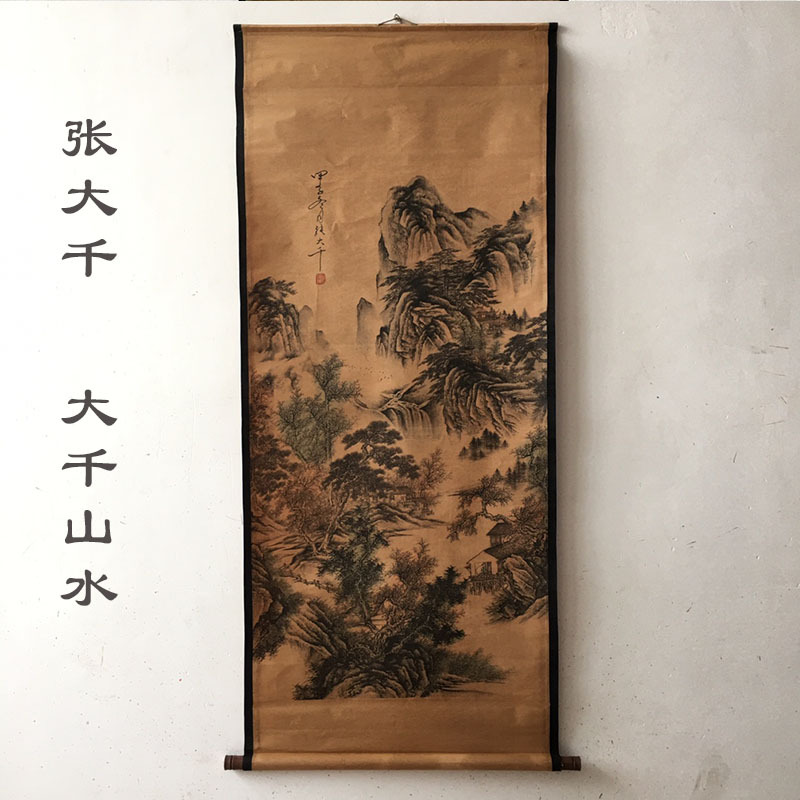 张大千
大千山水
月張大千